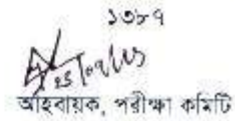 ১৩৮৭
আহবায়ক, পরীক্ষা কমিটি